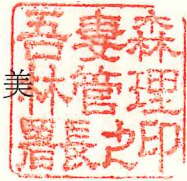 美
吾妻森
林管理
署長之印